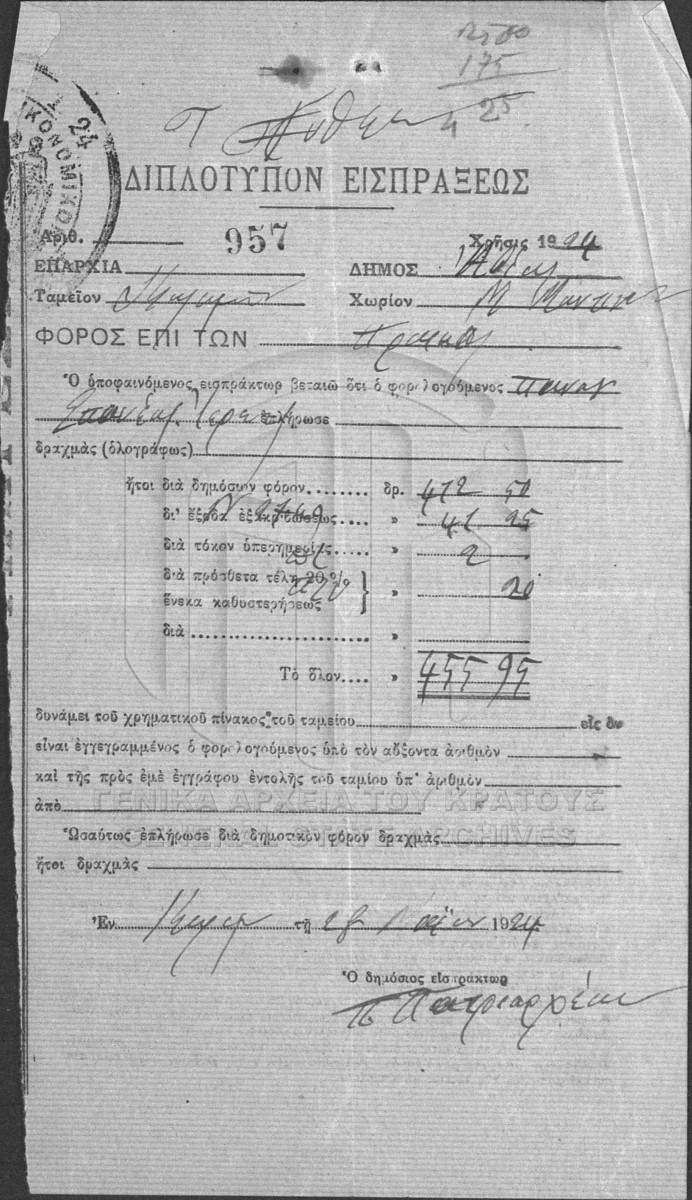 175
25
24
ΚΟΝΟΜΙΚΟ
ΔΙΠΛΟΤΥΠΟΝ ΕΙΣΠΡΑΞΕΩΣ
Ἀριθ. 957 Χρῆσις 1924
ΕΠΑΡΧΙΑ ΔΗΜΟΣ
Ταμεῖον Χωρίον
ΦΟΡΟΣ ΕΠΙ ΤΩΝ
Ὁ ὑποφαινόμενος εἰσπράκτωρ βεβαιῶ ὅτι ὁ φορολογούμενος
ἐπλήρωσε
δραχμὰς (ὁλογράφως)
ἤτοι διὰ δημόσιον φόρον........ δρ. 412 50
δι' ἔξοδα ἐξακριβώσεως.... » 41 25
διὰ τόκον ὑπερημερίας..... » 2
διὰ πρόσθετα τέλη 20 %
ἕνεκα καθυστερήσεως » 20
διὰ »
Τὸ ὅλον.... » 455 95
δυνάμει τοῦ χρηματικοῦ πίνακος τοῦ ταμείου εἰς ὃν
εἶναι ἐγγεγραμμένος ὁ φορολογούμενος ὑπὸ τὸν αὔξοντα ἀριθμὸν
καὶ τῆς πρὸς ἐμὲ ἐγγράφου ἐντολῆς τοῦ ταμίου ὑπ' ἀριθμὸν
ἀπὸ
ΓΕΝΙΚΑ ΑΡΧΕΙΑ ΤΟΥ ΚΡΑΤΟΥΣ
GENERAL STATE ARCHIVES
Ὡσαύτως ἐπλήρωσε διὰ δημοτικὸν φόρον δραχμὰς
ἤτοι δραχμὰς
Ἐν τῇ 28 Μαΐου 1924
Ὁ δημόσιος εἰσπράκτωρ
Π Πατριαρχέας